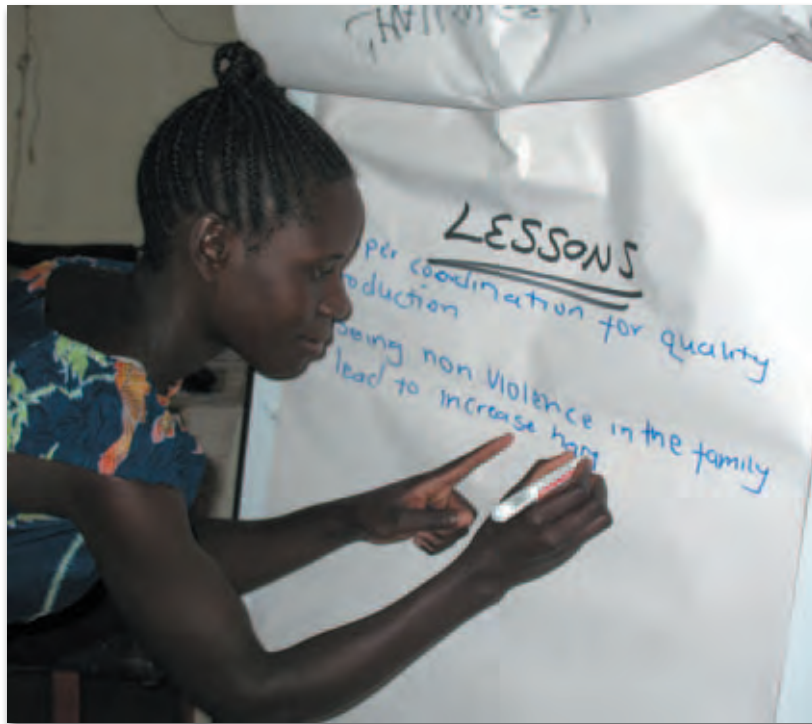 LESSONS
per coordination for quality
oduction
being non violence in the family
lead to increase harm